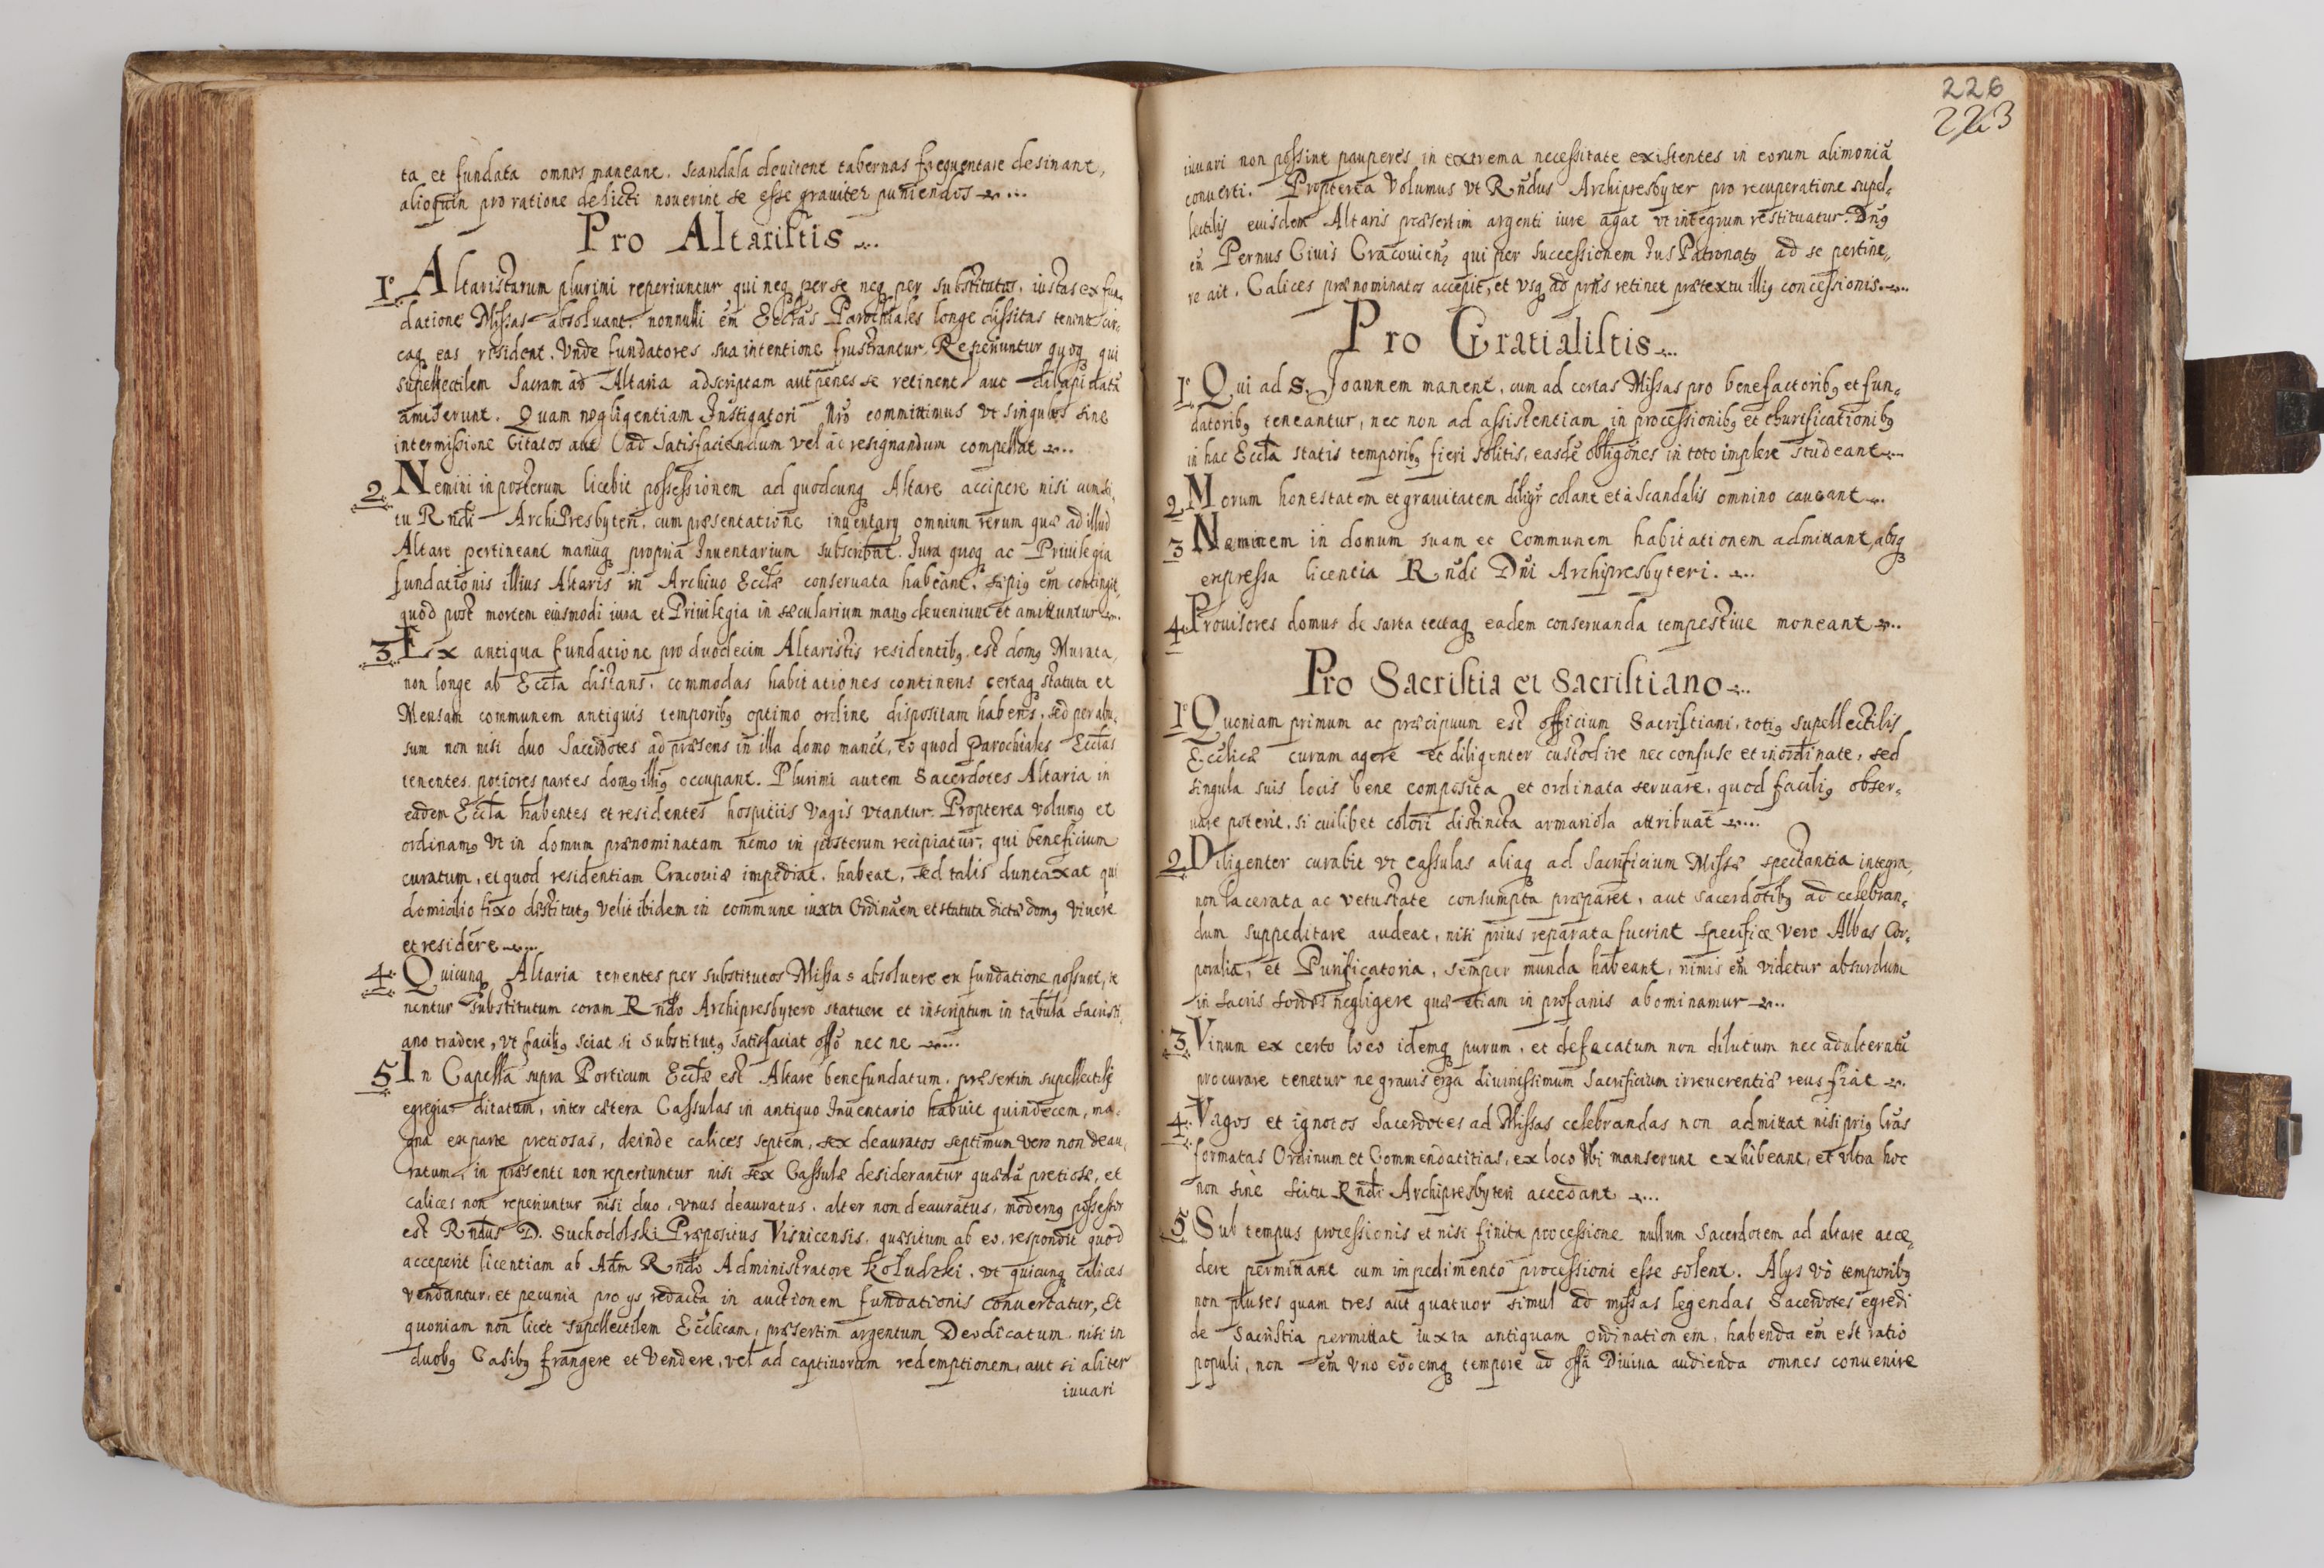 ta et fundata omnes maneant. scandala deuitent tabernas frequentare desinant,
alioquin pro ratione delicti nouerint se esse grauiter puniendos
Pro Altaristis
1º Altaristarum plurimi reperiuntur qui neq₃ per se neq₃ per substitutos, iustas ex fun,
datione Missas absoluant. nonnulli em̄ Eccłas Parochiales longe dissitas tenent cir,
caq₃ eas resident. Vnde fundatores sua intentione frustrantur. Reperiuntur quoq₃ qui
supellectilem Sacram ad Altaria adscriptam aut penes se retinent aut dilapidatā
amiserunt. Quam negligentiam Instigatori Nrō committimus vt singulos sine
intermissione Citatos aut ad satisfaciendum vel ac resignandum compellat
2. Nemini in posterum licebit possessionem ad quodcunq₃ Altare accipere nisi cum sci,
tu Rndi ArchiPresbyteri, cum præsentatione inuentarij omnium rerum quæ ad illud
Altare pertineant manuq₃ propria Inuentarium subscribat. Iura quoq₃ ac Priuilegia
fundationis illius Altaris in Archiuo Eccłæ conseruata habeant. sæpiꝰ em̄ contingit,
quod post mortem eiusmodi iura et Priuilegia in sæcularium manꝰ deueniunt et amittuntur
3. Ex antiqua fundatione pro duodecim Altaristis residentibꝰ est domꝰ Murata,
non longe ab Eccła distans. commodas habitationes continens certaq₃ statuta et
Mensam communem antiquis temporibꝰ optimo ordine dispositam habens, sed per abu,
sum non nisi duo Sacerdotes ad præsens in illa domo manēt, eo quod Parochiales Eccłas
tenentes potiores partes domꝰ illiꝰ occupant. Plurimi autem Sacerdotes Altaria in
eadem Eccła habentes et residentes hospitiis vagis vtantur. Propterea volumꝰ et
ordinamꝰ vt in domum prænominatam nemo in posterum recipiatur, qui beneficium
curatum, et quod residentiam Cracouiæ impediat. habeat, sed talis duntaxat qui
domicilio fixo destitutꝰ velit ibidem in commune iuxta Ordināēm et statuta dictæ domꝰ viuere
et residere
4. Quicunq₃ Altaria tenentes per substitutos Missas absoluere ex fundatione possunt, te
nentur substitutum coram Rndo Archipresbytero statuere et inscriptum in tabula sacristi,
ano tradere, vt faciliꝰ sciat si substitutꝰ satisfaciat offō nec ne
5 In Capella supra Porticum Eccłæ est Altare benefundatum, præsertim supellectile
egregia ditatum, inter cætera Cassulas in antiquo Inuentario habuit quindecem, ma,
gna ex parte pretiosas, deinde calices septem, sex deauratos septimum vero non deau,
ratum, in præsenti non reperiuntur nisi sex Cassulæ desiderantur quædā pretiosæ, et
calices non reperiuntur nisi duo, vnus deauratus, alter non deauratus, modernꝰ possessor
est Rndus D. Suchodolski Præpositus Visnicensis, quæsitum ab eo. respondit quod
acceperit licentiam ab Adm Rndo Administratore Koludzki, vt quicunq₃ calices
vendantur, et pecunia pro ijs redacta in auctionem fundationis conuertatur, Et
quoniam non licet supellectilem Ecclicam, præsertim argentum Deo dicatum nisi in
duobꝰ Casibꝰ frangere et vendere, vel ad captiuorum redemptionem, aut si aliter
iuuari
226
223
iuuari non possint pauperes in extrema necessitate existentes in eorum alimoniā
conuerti. Propterea Volumus vt Rndus Archipresbyter pro recuperatione supel,
lectilis eiusdem Altaris præsertim argenti iure agat vt integrum restituatur. Dnꝰ
em̄ Pernus Ciuis Cracouienꝭ qui per successionem Ius Patronatꝰ ad se pertine,
re ait. Calices prænominatos accepit, et vsq₃ ad præs retinet prætextu illiꝰ concessionis
Pro Gratialistis
1º Qui ad S. Joannem manent. cum ad certas Missas pro benefactoribꝰ et fun,
datoribꝰ teneantur, nec non ad assistentiam in processionibꝰ et thurificationibꝰ
in hac Eccła statis temporibꝰ fieri solitis, easdē obligōnes in toto implere studeant
2. Morum honestatem et grauitatem diligr colant et à scandalis omnino caueant
3 Neminem in domum suam et Communem habitationem admittant absq₃
expressa licentia Rndi Dni Archipresbyteri.
4. Prouisores domus de sarta tectaq₃ eadem conseruanda tempestiue moneant
Pro Sacristia et Sacristiano
1º Quoniam primum ac præcipuum est officium Sacristiani, totiꝰ supellectilis
Ecclicæ curam agere et diligenter custodire nec confuse et inordinate, sed
singula suis locis bene composita et ordinata seruare, quod faciliꝰ obser,
uare poterit, si cuilibet colori distincta armariola attribuat
2. Diligenter curabit vt cassulas aliaq₃ ad Sacrificium Missæ spectantia integra,
non lacerata ac vetustate consumpta præparet, aut sacerdotibꝰ ad celebran,
dum suppeditare audeat, nisi prius reparata fuerint specificæ vero Albas Cor,
poralia, et Purificatoria, semper munda habeant, nimis em̄ videtur absurdum
in sacris sordes negligere quæ etiam in profanis abominamur
3. Vinum ex certo loco idemq₃ purum, et defæcatum non dilutum nec adulteratū
procurare tenetur ne grauis erga diuinissimum Sacrificium irreuerentiæ reus fiat
4. Vagos et ignotos Sacerdotes ad Missas celebrandas non admittat nisi priꝰ lrās
formatas Ordinum et Commendatitias, ex loco vbi manserunt exhibeant, et vltra hoc
non sine scitu Rndi Archipresbyteri accedant
5 Sub tempus processionis et nisi finita processione nullum Sacerdotem ad altare acce,
dere permittant cum impedimento processioni esse solent. Alijs vō temporibꝰ
non plures quam tres aut quatuor simul ad missas legendas Sacerdotes egredi
de Sacristia permittat iuxta antiquam ordinationem, habenda em̄ est ratio
populi, non em̄ vno eodemq₃ tempore ad offā Diuina audienda omnes conuenire